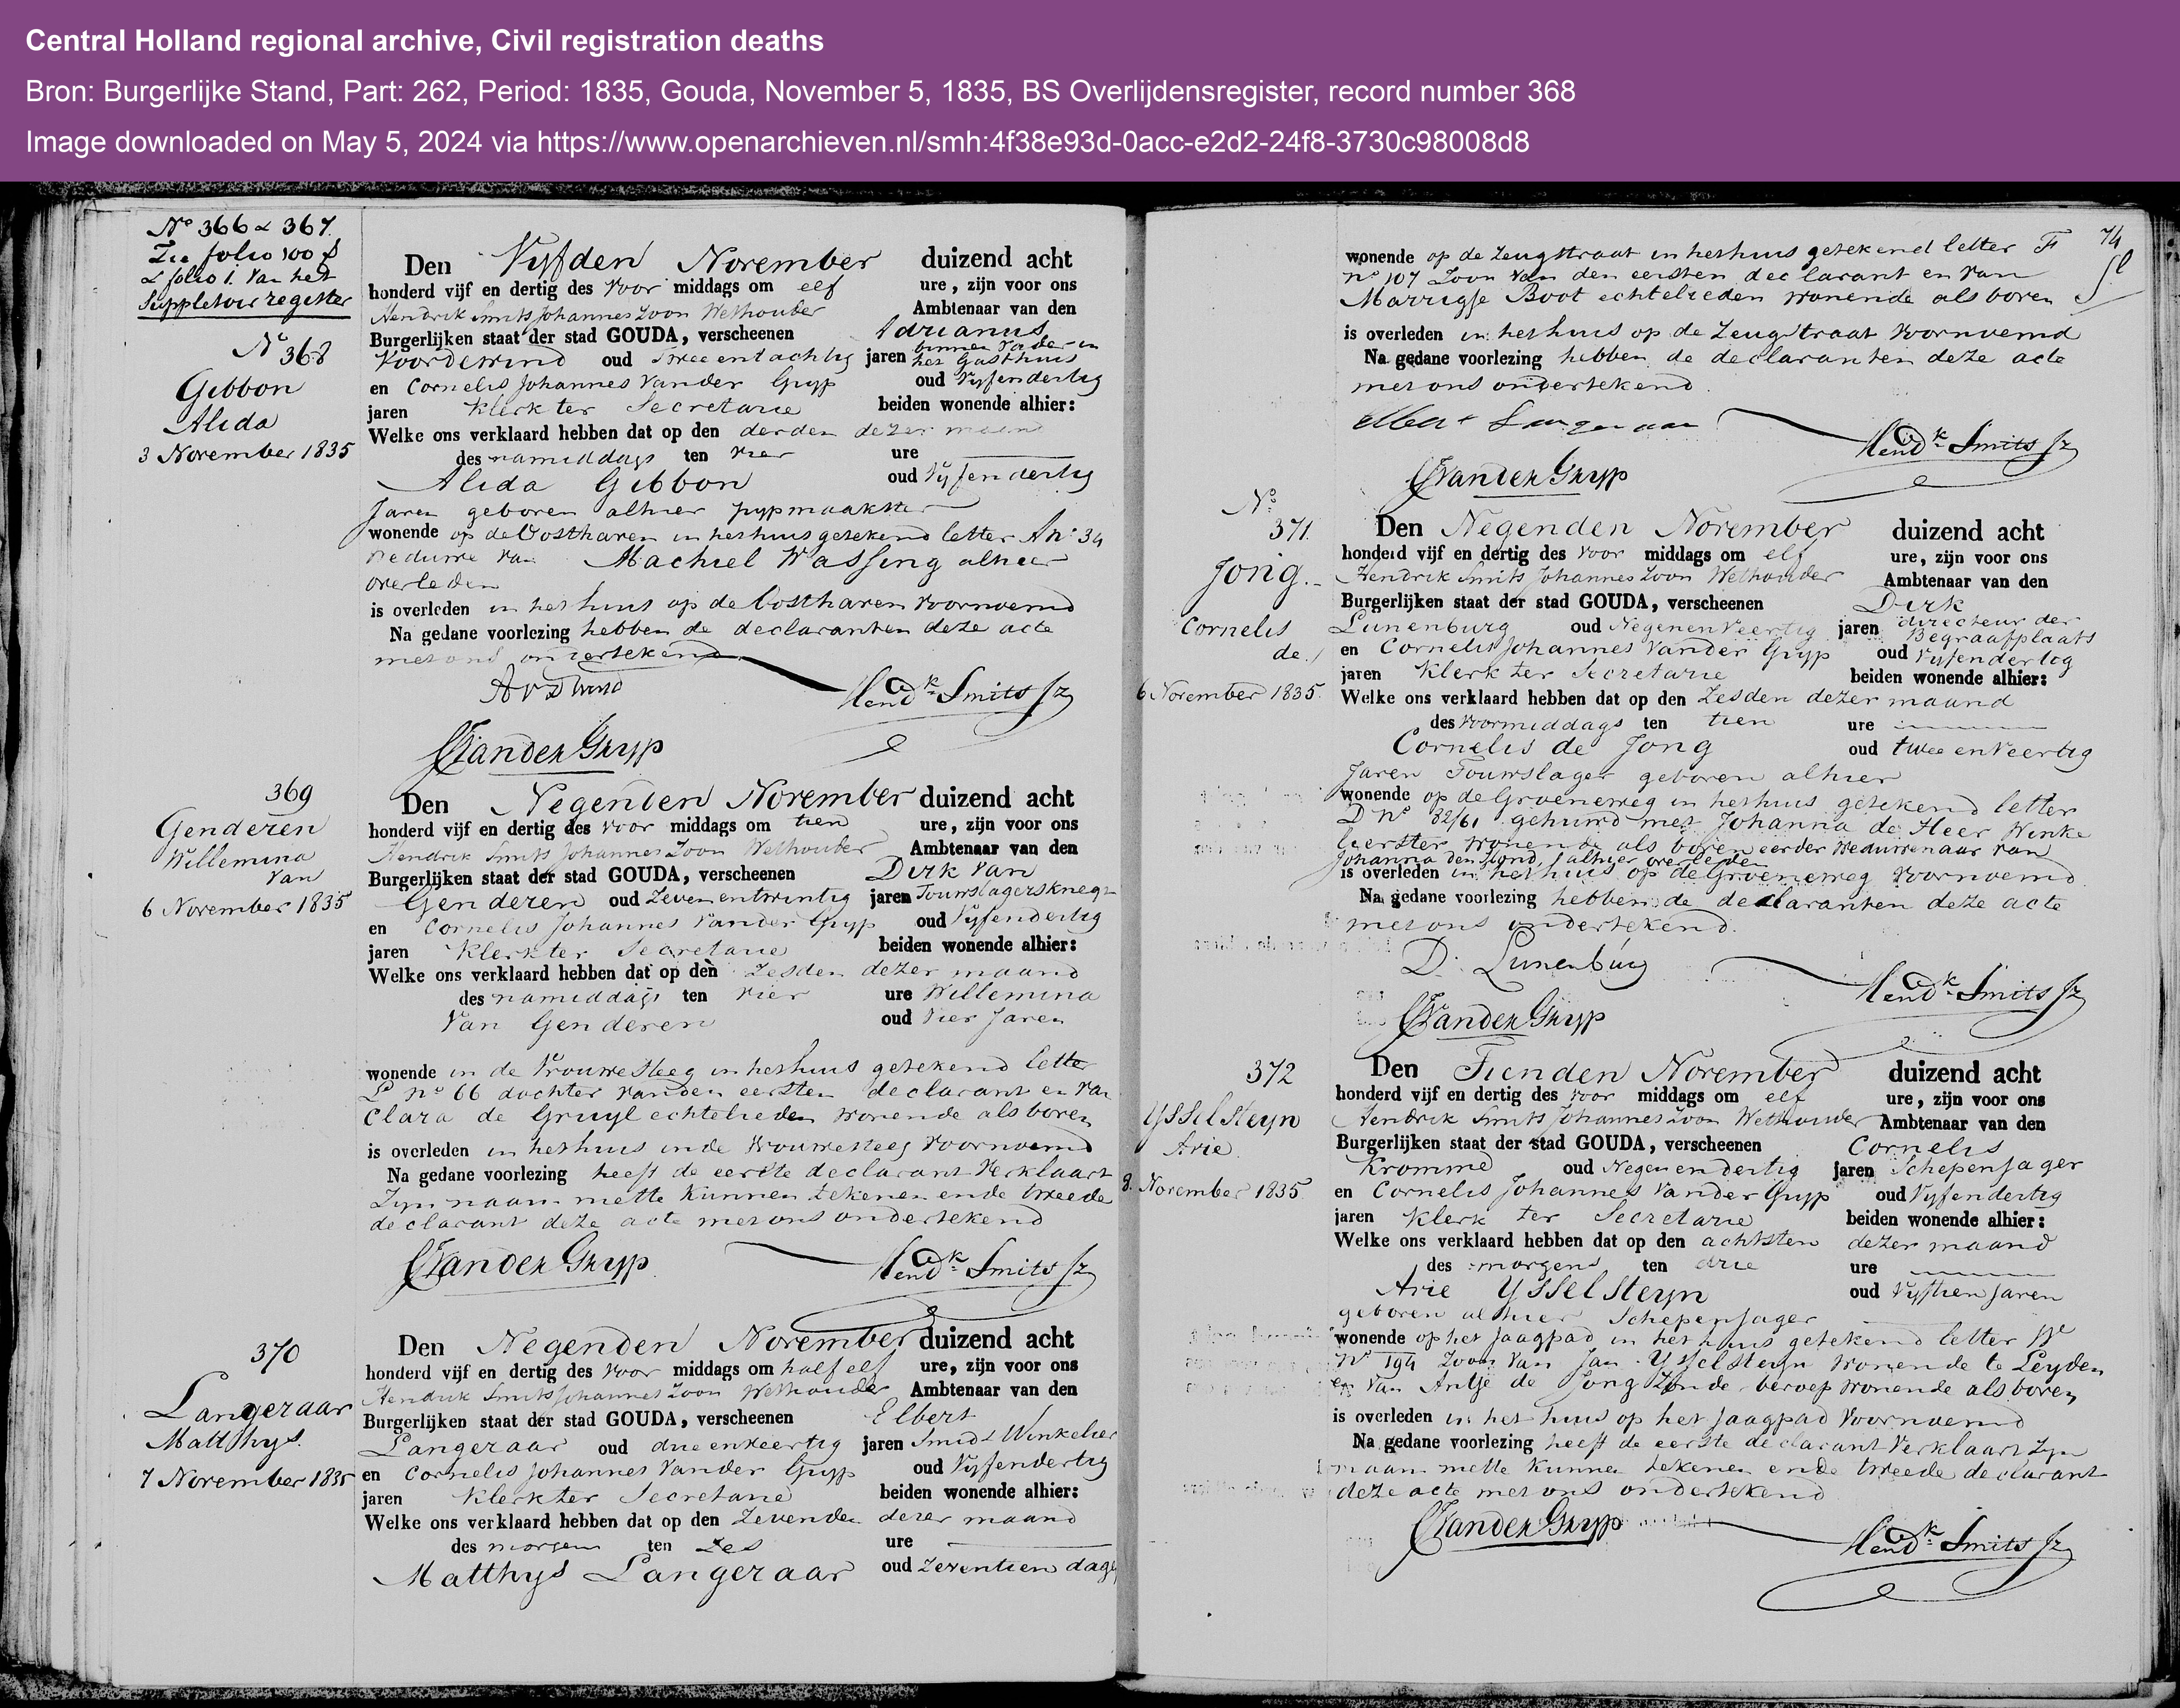 Central Holland regional archive, Civil registration deaths
Bron: Burgerlijke Stand, Part: 262, Period: 1835, Gouda, November 5, 1835, BS Overlijdensregister, record number 368
Image downloaded on May 5, 2024 via https://www.openarchieven.nl/smh:4f38e93d-0acc-e2d2-24f8-3730c98008d8
No 366 & 367
Zie folio 100
& folio 1. van het
Suppletoir register
No 368
Gibbon
Alida
3 November 1835
Den Vyfden November duizend acht
honderd vijf en dertig des voor middags om elf ure, zijn voor ons
Hendrik Smits Johannes Zoon Wethouder Ambtenaar van den
Burgerlijken staat der stad GOUDA, verscheenen Adrianus
Voordewind oud twee en tachtig jaren binnen vader in het Gasthuis
en Cornelis Johannes Vander Gryp oud Vyfendertig
jaren Klerk ter Secretarie beiden wonende alhier:
Welke ons verklaard hebben dat op den derden dezer maand
des namiddags ten vier ure
Alida Gibbon oud Vyfendertig
Jaren geboren alhier pypmaakster
wonende op de Oosthaven in het huis getekend letter A no 34
weduwe van Machiel Wassing alhier
overleden
is overleden in het huis op de Oosthaven voornoemd
Na gedane voorlezing hebben de declaranten deze acte
met ons ondertekend
Hendk Smits Jz
CJVander Gryp
369
Genderen
Willemina
van
6 November 1835
Den Negenden November duizend acht
honderd vijf en dertig des voor middags om tien ure, zijn voor ons
Hendrik Smits Johannes Zoon Wethouder Ambtenaar van den
Burgerlijken staat der stad GOUDA, verscheenen Dirk van
Genderen oud Zevenentwintig jaren Touwslagersknegt
en Cornelis Johannes Vander Gryp oud Vyfendertig
jaren Klerk ter Secretarie beiden wonende alhier:
Welke ons verklaard hebben dat op den Zesden dezer maand
des namiddags ten vier ure Willemina
Van Genderen oud Vier Jaren
wonende in de Vrouwesteeg in het huis getekend letter
L no 66 dochter van den eersten declarant en van
Clara de Gruyl echtelieden wonende als boven
is overleden in het huis in de Vrouwesteeg voornoemd
Na gedane voorlezing heeft de eerste declarant verklaart
Zyn naam niette kunnen tekenen ende tweede
declarant deze acte met ons ondertekend
CJVander Gryp Hendk Smits Jz
370
Langeraar
Matthys
7 November 1835
Den Negenden November duizend acht
honderd vijf en dertig des voor middags om half elf ure, zijn voor ons
Hendrik Smits Johannes Zoon Wethouder Ambtenaar van den
Burgerlijken staat der stad GOUDA, verscheenen Elbert
Langeraar oud drieenveertig jaren Smid & Winkelier
en Cornelis Johannes Vander Gryp oud Vyfendertig
jaren Klerk ter Secretarie beiden wonende alhier:
Welke ons verklaard hebben dat op den Zevenden dezer maand
des morgens ten Zes ure
Matthys Langeraar oud Zeventien dagen
74
wonende op de Zeugstraat in het huis getekend letter F
no 107 Zoon van den eersten declarant en van
Marrigje Boot echtelieden wonende als boven
is overleden in het huis op de Zeugstraat voornoemd
Na gedane voorlezing hebben de declaranten deze acte
met ons ondertekend
Elbert Langeraar
Hendk Smits Jz
CJVander Gryp
No 371
Jong
Cornelis
de
6 November 1835
Den Negenden November duizend acht
honderd vijf en dertig des voor middags om elf ure, zijn voor ons
Hendrik Smits Johannes Zoon Wethouder Ambtenaar van den
Burgerlijken staat der stad GOUDA, verscheenen Dirk
Lunenburg oud Negenenveertig jaren directeur der Begraafplaats
en Cornelis Johannes Vander Gryp oud Vyfendertig
jaren Klerk ter Secretarie beiden wonende alhier:
Welke ons verklaard hebben dat op den Zesden dezer maand
des voormiddags ten tien ure
Cornelis de Jong oud twee enveertig
Jaren Touwslager geboren alhier
wonende op de Groeneweg in het huis getekend letter
D No 82/61 gehuwd met Johanna de Heer Winke
leerster wonende als boven eerder Weduwenaar van
Johanna den Hond, alhier overleden
is overleden in het huis op de Groeneweg voornoemd
Na gedane voorlezing hebben de declaranten deze acte
met ons ondertekend.
D. Lunenburg
Hendk Smits Jz
CJVander Gryp
372
Ysselsteyn
Arie
8 November 1835
Den Tienden November duizend acht
honderd vijf en dertig des voor middags om elf ure, zijn voor ons
Hendrik Smits Johannes Zoon Wethouder Ambtenaar van den
Burgerlijken staat der stad GOUDA, verscheenen Cornelis
Kromme oud Negenendertig jaren Schepenjager
en Cornelis Johannes Vander Gryp oud Vyfendertig
jaren Klerk ter Secretarie beiden wonende alhier:
Welke ons verklaard hebben dat op den achtsten dezer maand
des morgens ten drie ure
Arie Ysselsteyn oud Vyftien Jaren
geboren alhier Schepenjager
wonende op het Jaagpad in het huis getekend letter W
No 194 Zoon van Jan Ysselsteyn wonende te Leyden
en van Antje de Jong Zonde beroep wonende als boven
is overleden in het huis op het Jaagpad voornoemd
Na gedane voorlezing heeft de eerste declarant verklaart Zyn
naam niette kunnen tekenen ende tweede declarant
deze acte met ons ondertekend
CJVander Gryp
Hendk Smits Jz